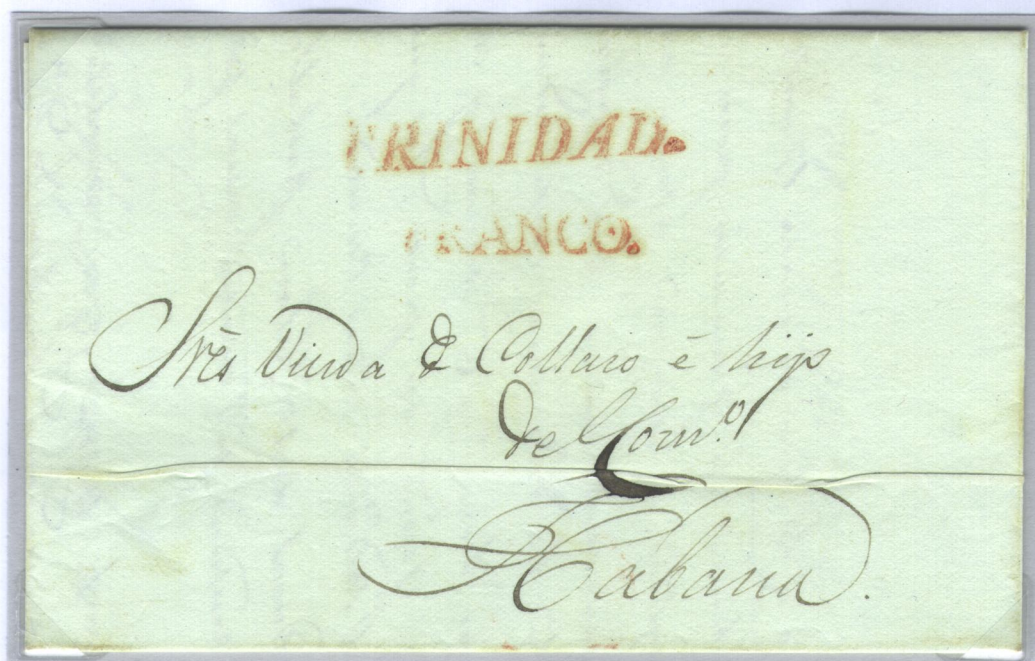 TRINIDAD.
FRANCO.
Srēs Viuda de Collazo ē hijo
del Com.º
Habana.